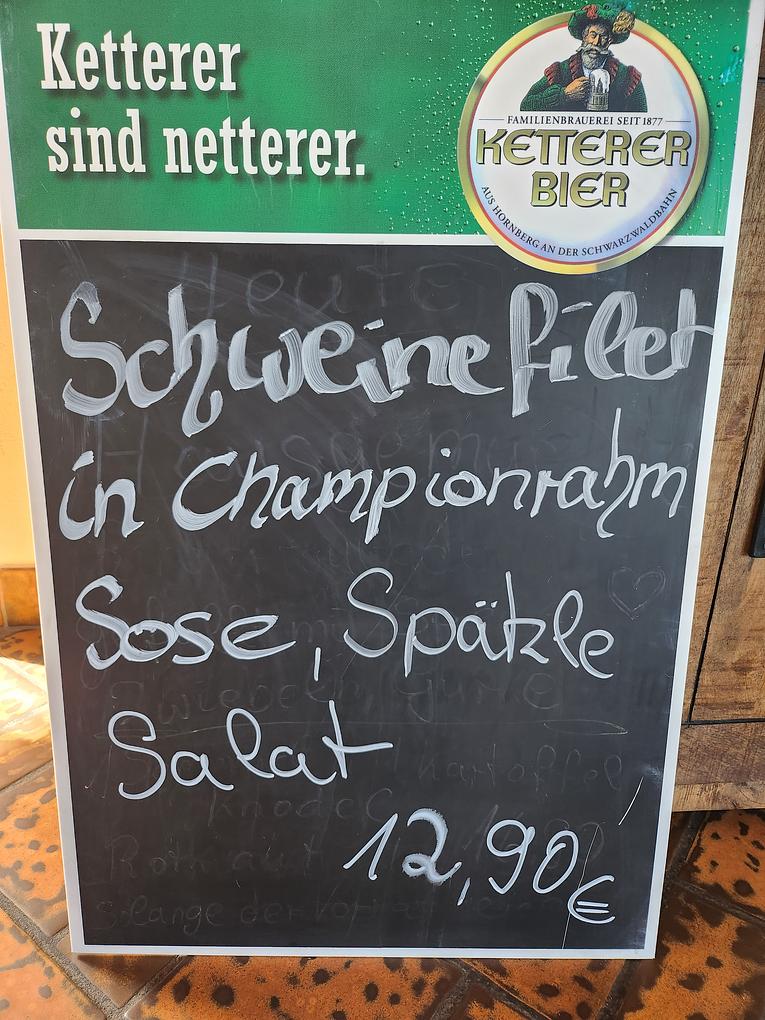 Ketterer
sind netterer.
FAMILIENBRAUEREI SEIT 1877
KETTERER
BIER
AUS HORNBERG AN DER SCHWARZWALDBAHN
Heute
Schweinefilet
in Championrahm
Sose, Spätzle
Salat
12,90€